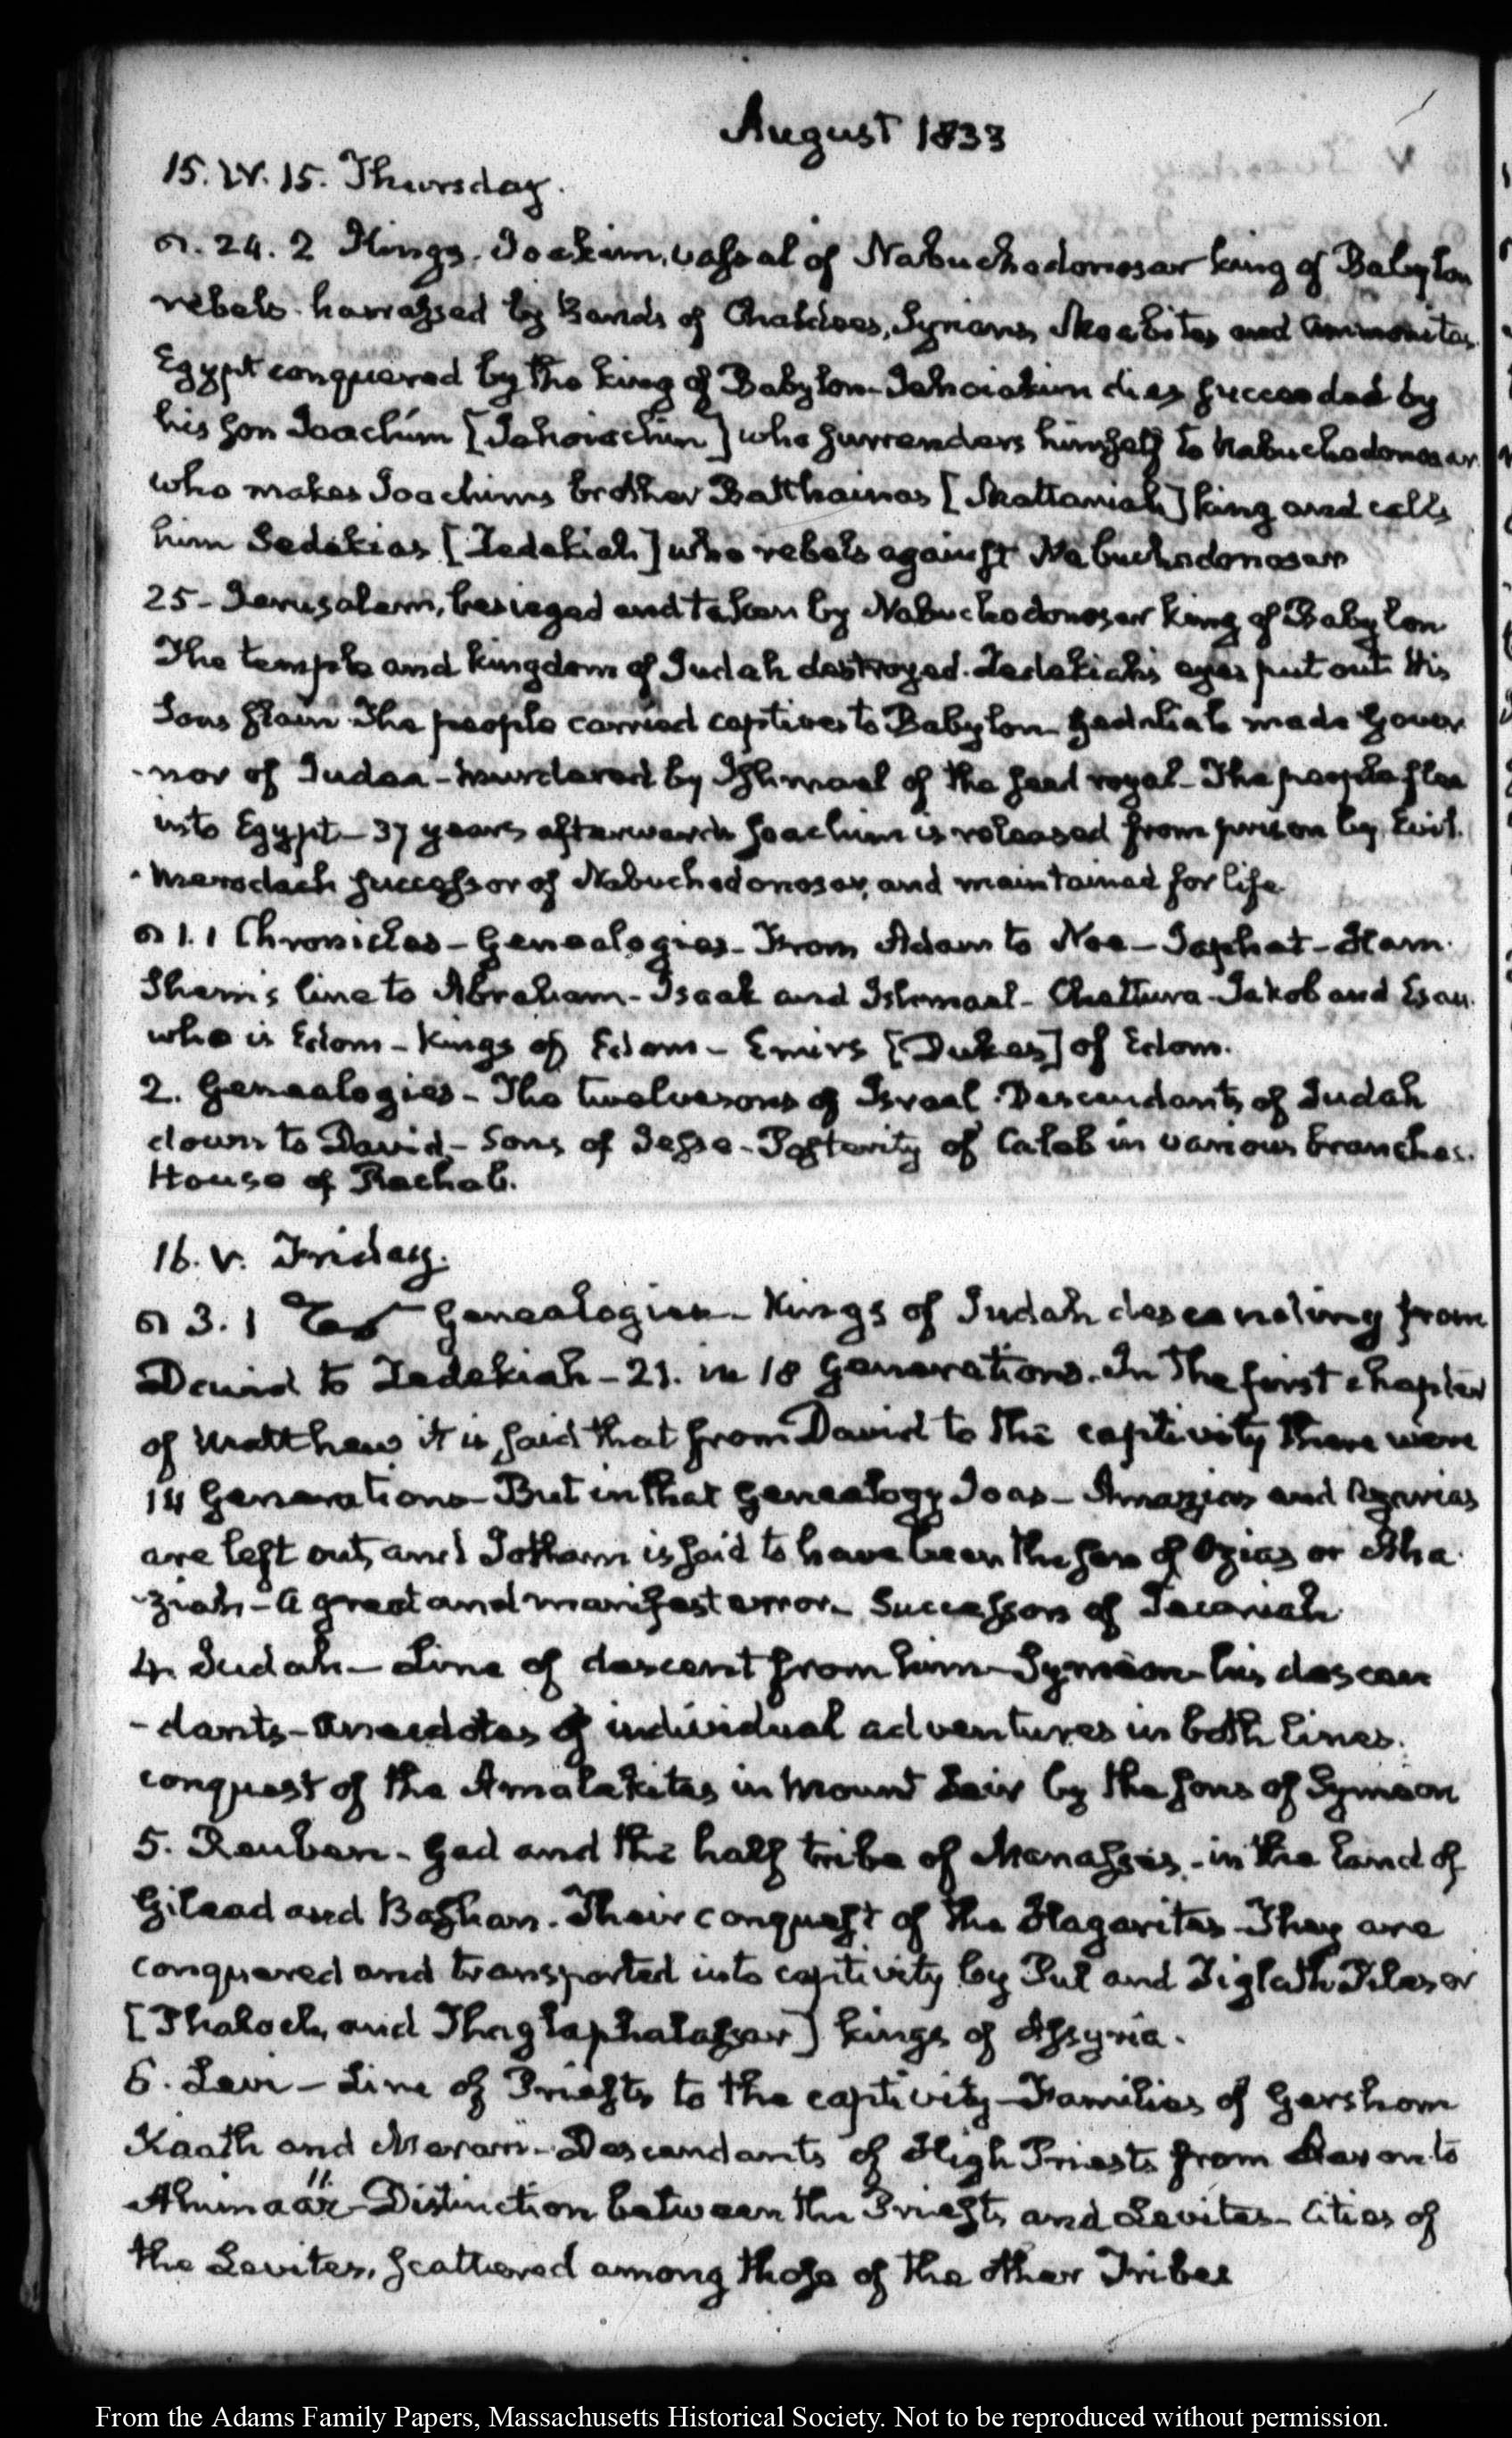 August 1833
15. IV. 15. Thursday.
24. 2 Kings. Joakim, vassal of Nabuchodonosar king of Babylon
rebels. harrassed by Bands of Chaldees, Syrians, Moabites and Ammonites.
Egypt conquered by the king of Babylon - Jehoiakim dies succeeded by
his son Joachim [Jehoiachin] who surrenders himself to Nabuchodonosar
who makes Joachims brother Batthainas [Mattaniah] king and calls
him Sedekias [Zedekiah] who rebels against Nabuchodonosar
25 - Jerusalem, besieged and taken by Nabuchodonosar king of Babylon
The temple and kingdom of Judah destroyed. Zedekiah's eyes put out His
Sons slain. The people carried captives to Babylon - Gedaliah made Gover
-nor of Judea - murdered by Ishmael of the seed royal - The people flee
into Egypt - 37 years afterwards Joachim is released from prison by Evil.
-Merodach successor of Nabuchodonosor, and maintained for life
1. 1 Chronicles - Genealogies - From Adam to Noe - Japhet - Ham.
Shem's line to Abraham - Isaak and Ishmael - Chettura - Jakob and Esau.
who is Edom - Kings of Edom - Emirs [Dukes] of Edom.
2. Genealogies - The twelve sons of Israel. Descendants of Judah
down to David - Sons of Jesse - Posterity of Caleb in various branches.
House of Rachab.
16. V. Friday.
3. 1 Genealogies - Kings of Judah descending from
David to Zedekiah - 21. in 18 Generations. In The first chapter
of Matthew it is said that from David to the captivity there were
14 Generations - But in that Genealogy Joas - Amazias and Azarias
are left out, and Jotham is said to have been the son of Ozias or Aha
-ziah - a great and manifest error - Successors of Jecaniah
4. Judah - Line of descent from him - Symeon - his descen
-dants - Anecdotes of individual adventures in both lines.
conquest of the Amalekites in Mount Seir by the sons of Symeon
5. Reuben - Gad and the half tribe of Manasses - in the land of
Gilead and Bashan. Their conquest of the Hagarites - They are
conquered and transported into captivity by Pul and Tiglath Pilesor
[Phaloch, and Thaglaphalassar] kings of Assyria.
6. Levi - Line of Priests to the captivity - Families of Gershom
Kaath and Merari - Descendants of High Priests from Aaron to
Ahimaäz - Distinction between the Priests and Levites - Cities of
the Levites, scattered among those of the other Tribes
From the Adams Family Papers, Massachusetts Historical Society. Not to be reproduced without permission.